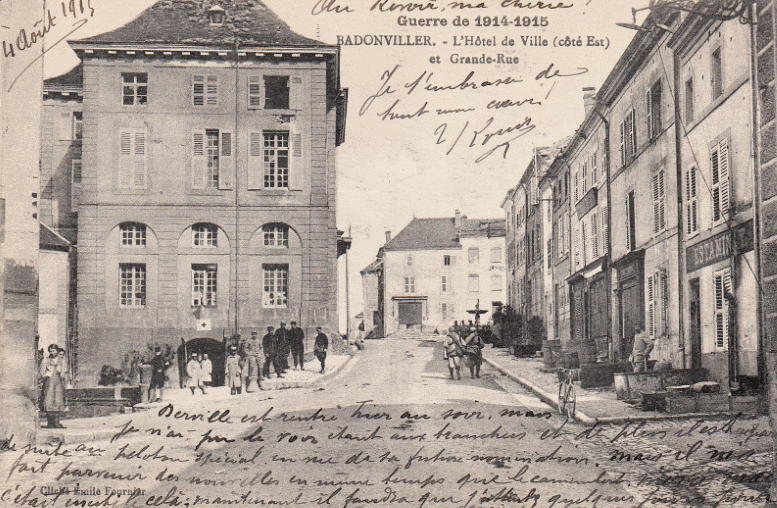 4 Août 1915
Au Revoir, ma chérie !
Guerre de 1914-1915
BADONVILLER. - L'Hôtel de Ville (côté Est)
et Grande-Rue
Je t'embrasse de
tout mon cœur !
ESTAMI
Berville est rentré hier au soir, mais
je n'ai pu le voir étant aux tranchées et de plus
de suite au peloton spécial en vue de sa future nomination. mais il
fait parvenir des nouvelles en même temps que le
c'était inutile cela ; maintenant il faudra que j'attende quelques jours pour
Cliché Emile Fournier